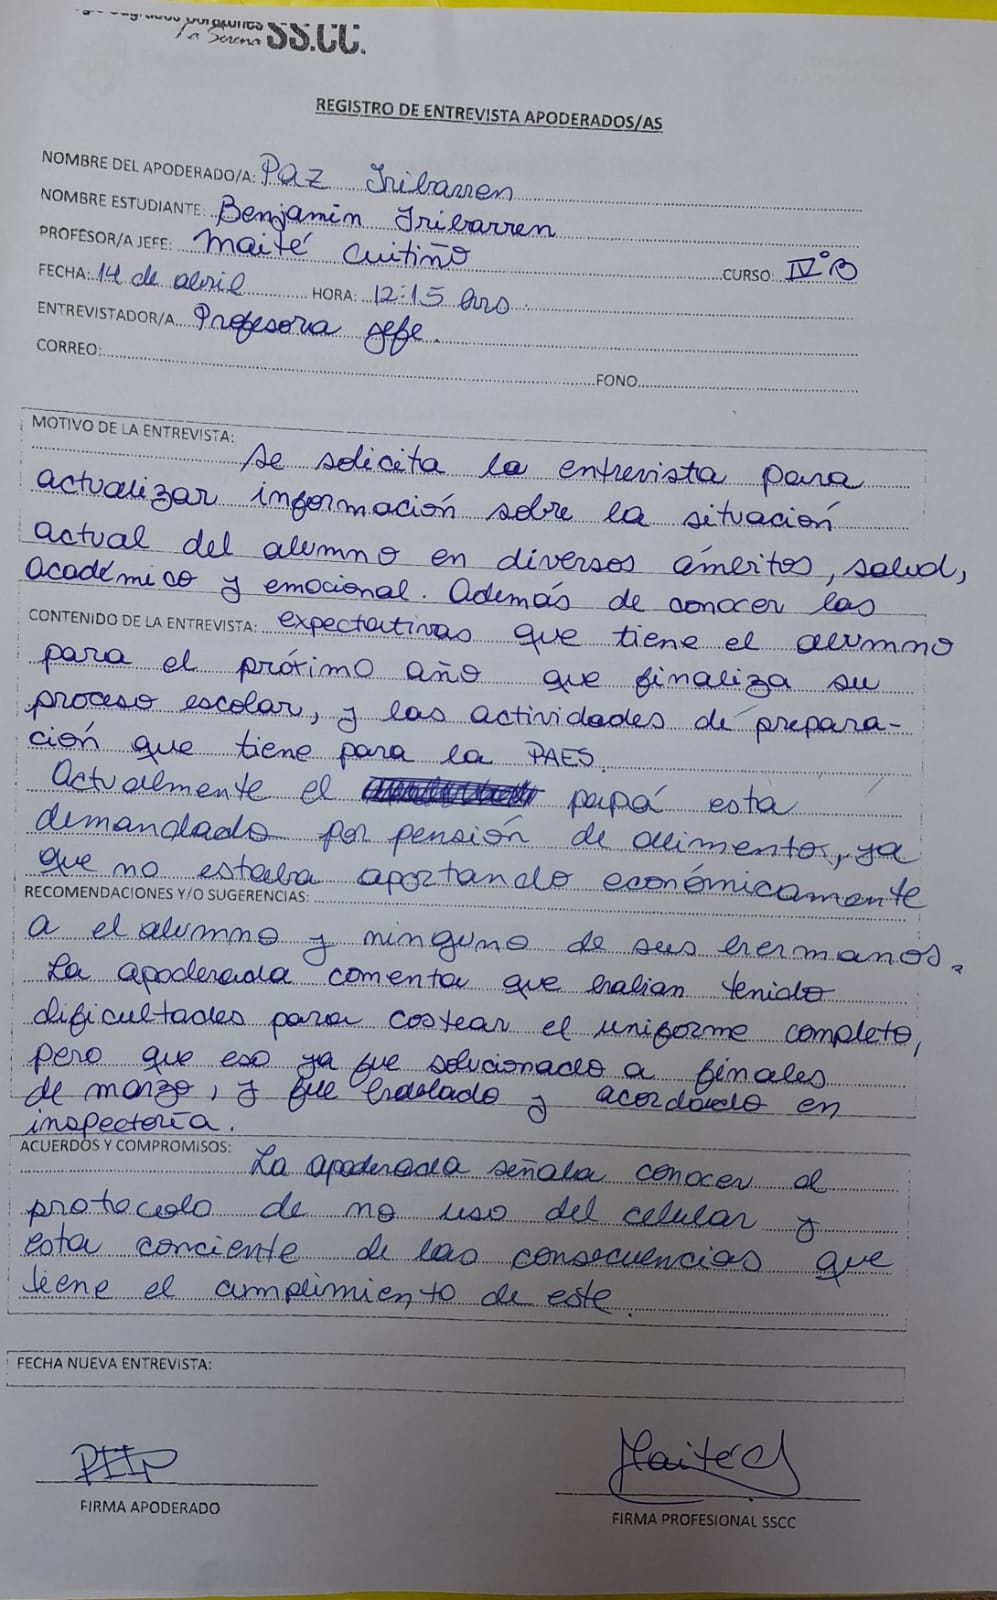 Sagrados Corazones
La Serena SS.CC.
REGISTRO DE ENTREVISTA APODERADOS/AS
NOMBRE DEL APODERADO/A: Paz Iribarren
NOMBRE ESTUDIANTE: Benjamín Iribarren
PROFESOR/A JEFE: Maité Cuitiño CURSO: IV°B
FECHA: 14 de abril HORA: 12:15 hrs.
ENTREVISTADOR/A Profesora jefe.
CORREO: FONO
MOTIVO DE LA ENTREVISTA:
Se solicita la entrevista para
actualizar información sobre la situación
actual del alumno en diversos ámbitos, salud,
académico y emocional. Además de conocer las
CONTENIDO DE LA ENTREVISTA: expectativas que tiene el alumno
para el próximo año que finaliza su
proceso escolar, y las actividades de prepara-
ción que tiene para la PAES.
Actualmente el papá esta
demandado por pensión de alimentos, ya
que no estaba aportando económicamente
RECOMENDACIONES Y/O SUGERENCIAS:
a el alumno y ninguno de sus hermanos.
La apoderada comenta que habian tenido
dificultades para costear el uniforme completo,
pero que eso ya fue solucionado a finales
de marzo, y fue hablado y acordado en
inspectoría.
ACUERDOS Y COMPROMISOS: La apoderada señala conocer el
protocolo de no uso del celular y
esta conciente de las consecuencias que
tiene el cumplimiento de este.
FECHA NUEVA ENTREVISTA:
FIRMA APODERADO
FIRMA PROFESIONAL SSCC